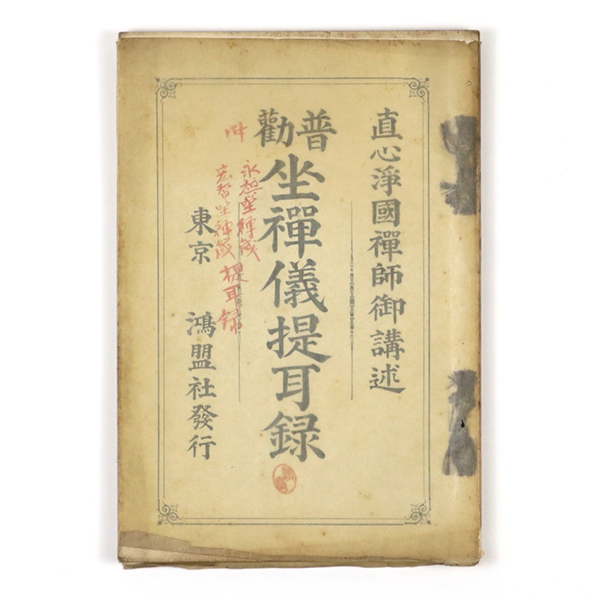 直心淨國禪師御講述
普勸
坐禪儀提耳録
永想坐禪箴
宏智坐禪箴
提耳録
東京　鴻盟社發行